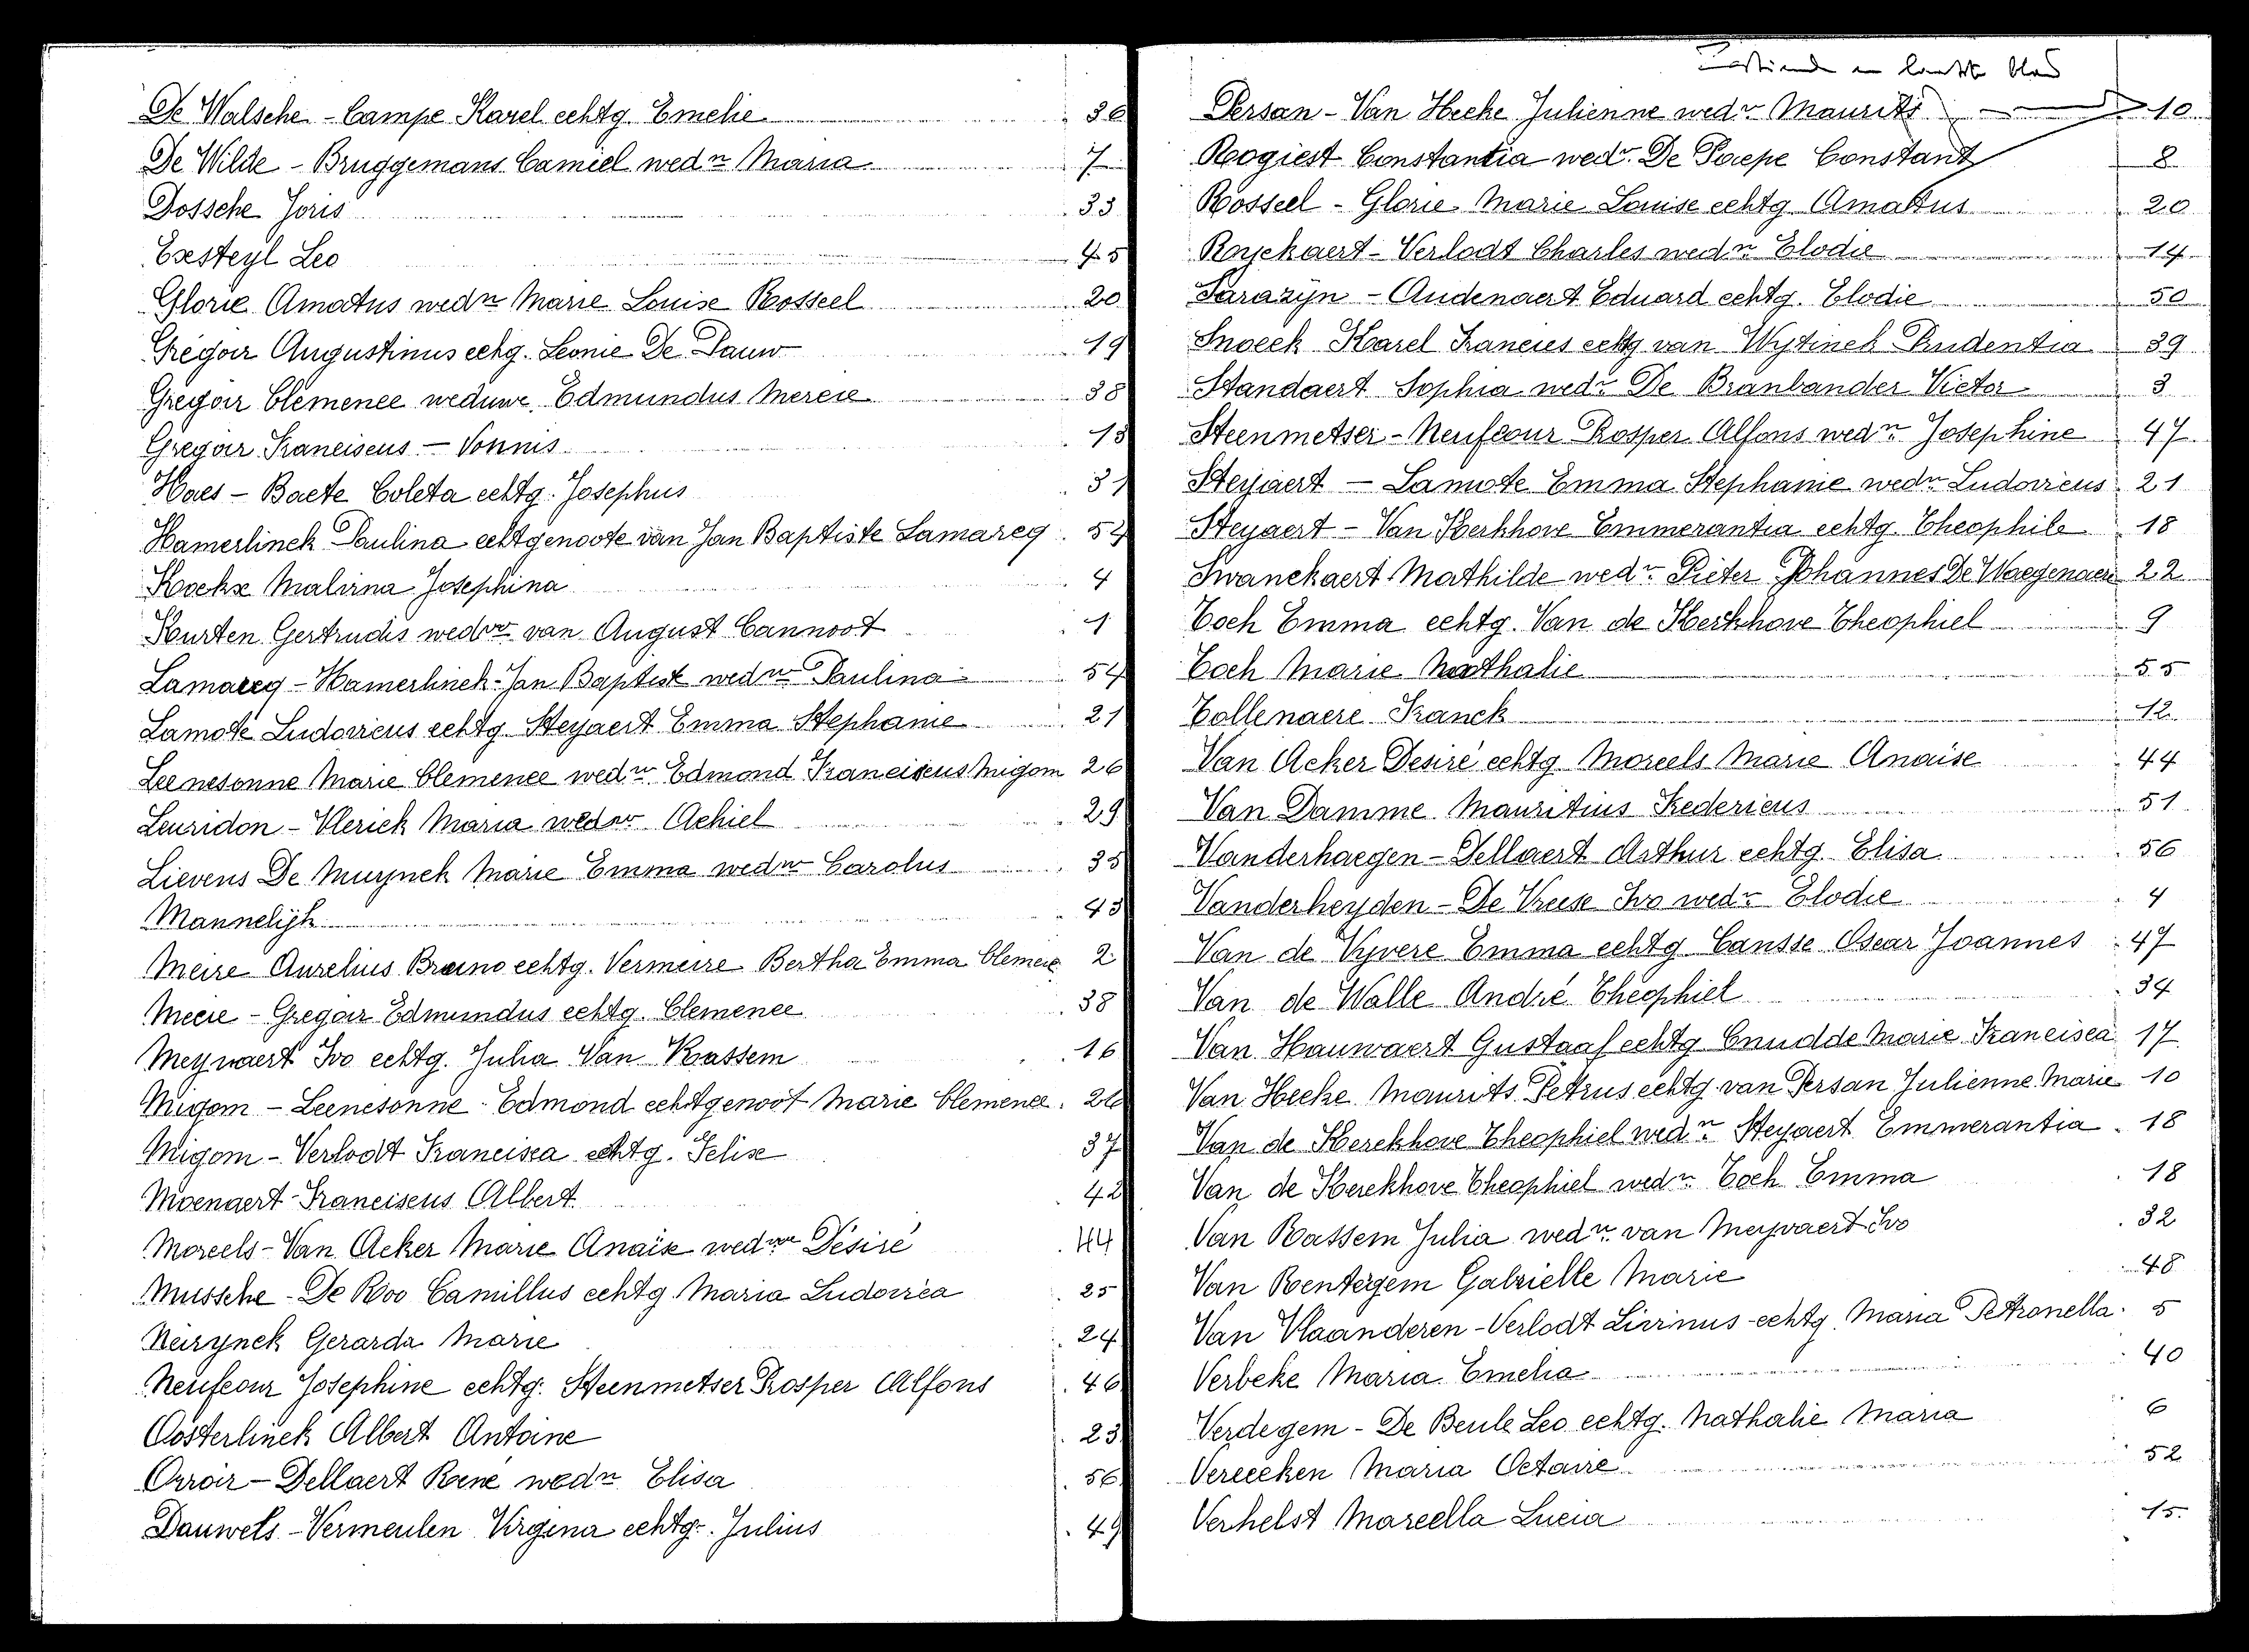 De Walsche - Campe Karel echtg Emelie 36
De Wilde - Bruggemans Camiel wedr Maria 7
Dossche Joris 33
Eresteyl Leo 45
Glorie Amatus wedr Marie Louise Rosseel 20
Gregoir Augustinus echg. Leonie De Pauw 19
Gregoir Clemence weduwe Edmundus Mereie 38
Gregoir Franciscus - Vonnis 13
Haes - Baete Coleta echtg. Josephus 31
Hamerlinck Paulina echtgenoote van Jan Baptiste Lamareg 54
Kockx Malvina Josephina 4
Kurten Gertrudis wedwe van August Cannoot 1
Lamareg - Hamerlinck - Jan Baptist wedr Paulina 54
Lamote Ludovicus echtg Steyaert Emma Stephanie 21
Leenesonne Marie Clemence wedw Edmond Franciscus Migom 26
Leuridon - Vlerick Maria wedwe Achiel 29
Lievens De Muynck Marie Emma wedw Carolus 35
Mannelijk 43
Meire Aurelius Bruno echtg. Vermeire Bertha Emma Clemence 2
Meeie - Gregoir Edmundus echtg. Clemence 38
Meywaert Ivo echtg. Julia Van Rassem 16
Migom - Leenesonne - Edmond echtgenoot Marie Clemence 26
Migom - Verlodt Francisca echtg. Felise 37
Moenaert Franciscus Albert 42
Moreels - Van Acker Marie Anaïse wedwe Désiré 44
Mussche - De Roo Camillus echtg Maria Ludovica 25
Neirynck Gerarda Marie 24
Neufcour Josephine echtg. Steenmetser Prosper Alfons 46
Oosterlinck Albert Antoine 23
Orroir - Dellaert René wedr Elisa 56
Dauwels - Vermeulen Virgina echtg. Julius 49
blad
Persan - Van Hecke Julienne wedr Maurits 10
Roogiest Constantia wedr. De Paepe Constant 8
Rosseel - Glorie Marie Louise echtg Amatus 20
Ryckaert - Verlodt Charles wedr Elodie 14
Sarazyn - Audenaert Eduard echtg. Elodie 50
Snoeck Karel Francies echtg van Wytinck Prudentia 39
Standaert Sophia wedr De Branbander Victor 3
Steenmetser - Neufcour Prosper Alfons wedr Josephine 47
Steyaert - Lamote Emma Stephanie wedr Ludovicus 21
Steyaert - Van Kerkhove Emmerantia echtg Theophile 18
Swanckaert Mathilde wedr Pieter Johannes De Waegenaere 22
Toch Emma echtg. Van de Kerkhove Theophiel 9
Toch Marie Nathalie 55
Tollenaere Franck 12
Van Acker Desiré echtg Moreels Marie Anaïse 44
Van Damme Mauritius Fredericus 51
Vanderhaegen - Dellaert Arthur echtg. Elisa 56
Vanderheyden - De Vreese Ivo wedr Elodie 4
Van de Vyvere Emma echtg Cansse Oscar Joannes 47
Van de Walle André Theophiel 34
Van Hauwaert Gustaaf echtg Cnudde Marie Francisca 17
Van Hecke Maurits Petrus echtg van Persan Julienne Marie 10
Van de Kerckhove Theophiel wedr Steyaert Emmerantia 18
Van de Kerckhove Theophiel wedr Toch Emma 18
Van Rassem Julia wedr van Meyvaert Ivo 32
Van Renterghem Gabrielle Marie 48
Van Vlaanderen - Verlodt Livinus echtg Maria Petronella 5
Verbeke Maria Emelia 40
Verdegem - De Beule Leo echtg. Nathalie Maria 6
Vereecken Maria Octavie 52
Verhelst Marcella Lucia 15